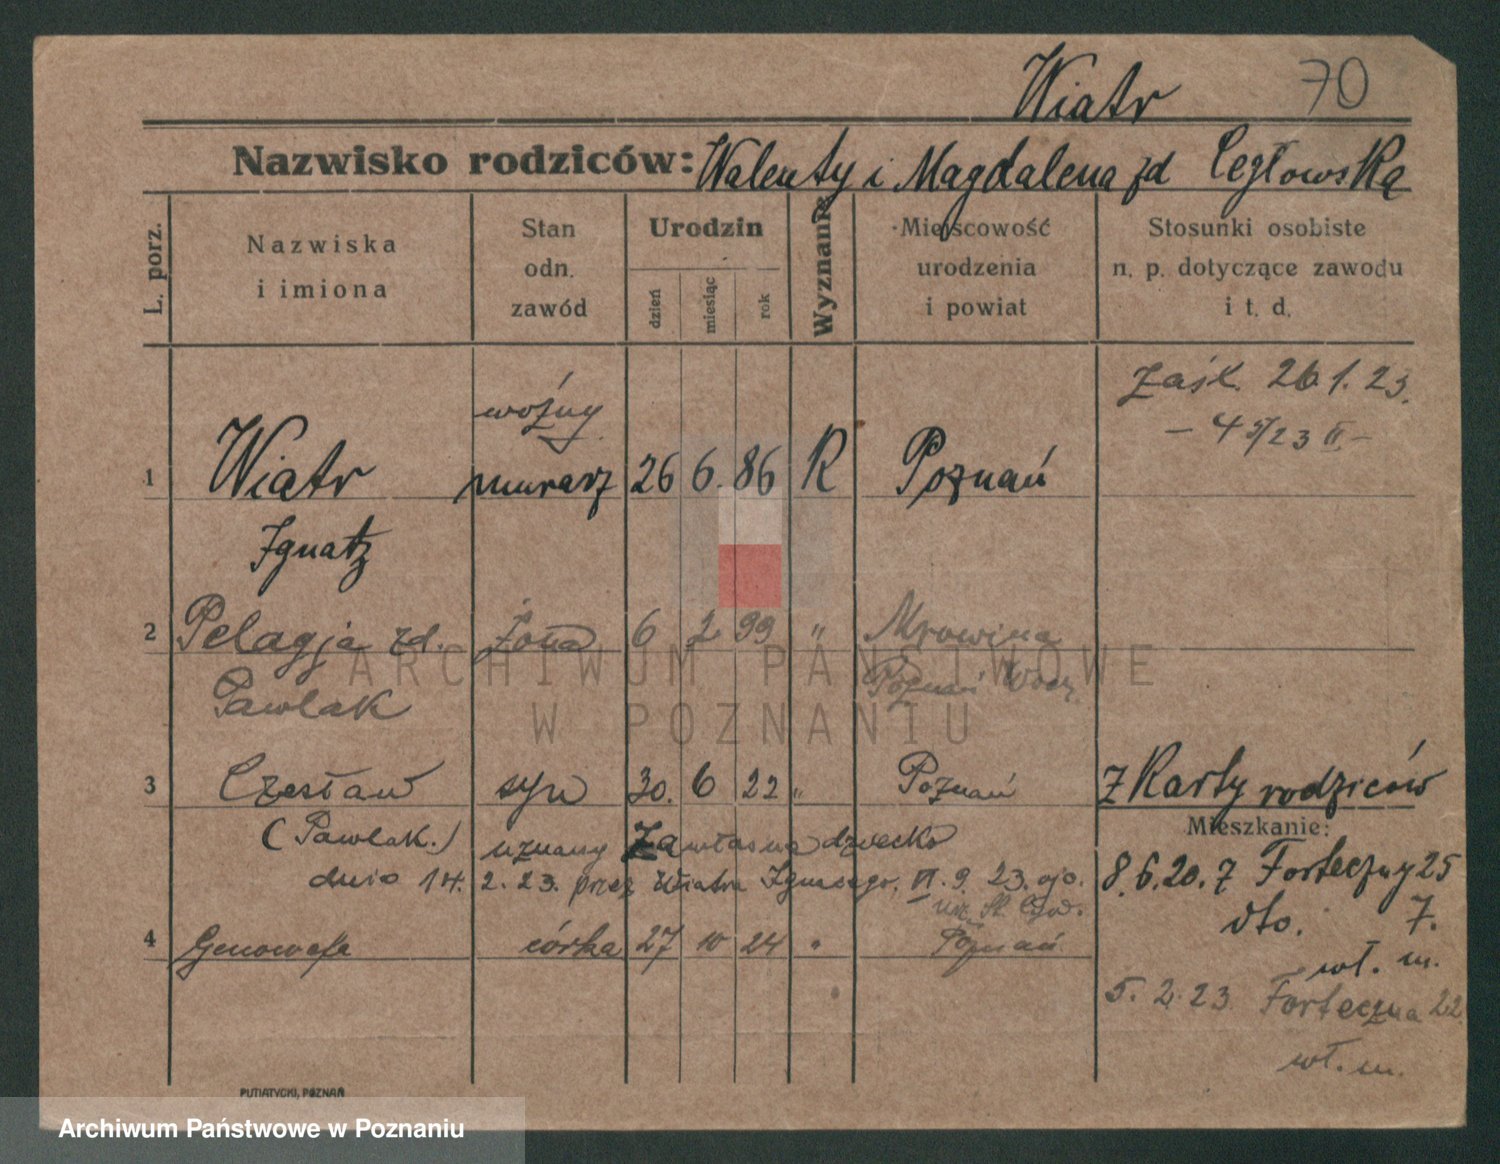 Wiatr 70
Nazwisko rodziców: Walenty i Magdalena zd Cegłowska
L. porz.
Nazwiska i imiona
Stan odn. zawód
Urodzin
dzień miesiąc rok
Wyznanie
Miejscowość urodzenia i powiat
Stosunki osobiste n. p. dotyczące zawodu i t. d.
zaśl. 26.1.23.
woźny
1 Wiatr murarz 26 6. 86 R Poznań
Ignatz
2 Pelagja zd. żona 6 2 99 „ Mrowina
Pawlak Poznań
3 Czesław syn 30. 6 22 „ Poznań z Karty rodziców
Mieszkanie:
(Pawlak.) uznany za własne dziecko
dnia 14. 2. 23. przez Wiatra Ignacego, VI. 9. 23.
8.6.20. 7 Forteczny 25
dto. 7.
4 Genowefa córka 27 10 24 „ Poznań
wł. m.
5. 2. 23. Forteczna 22
wł. m.
PUTIATYCKI, POZNAŃ
ARCHIWUM PAŃSTWOWE
W POZNANIU
Archiwum Państwowe w Poznaniu